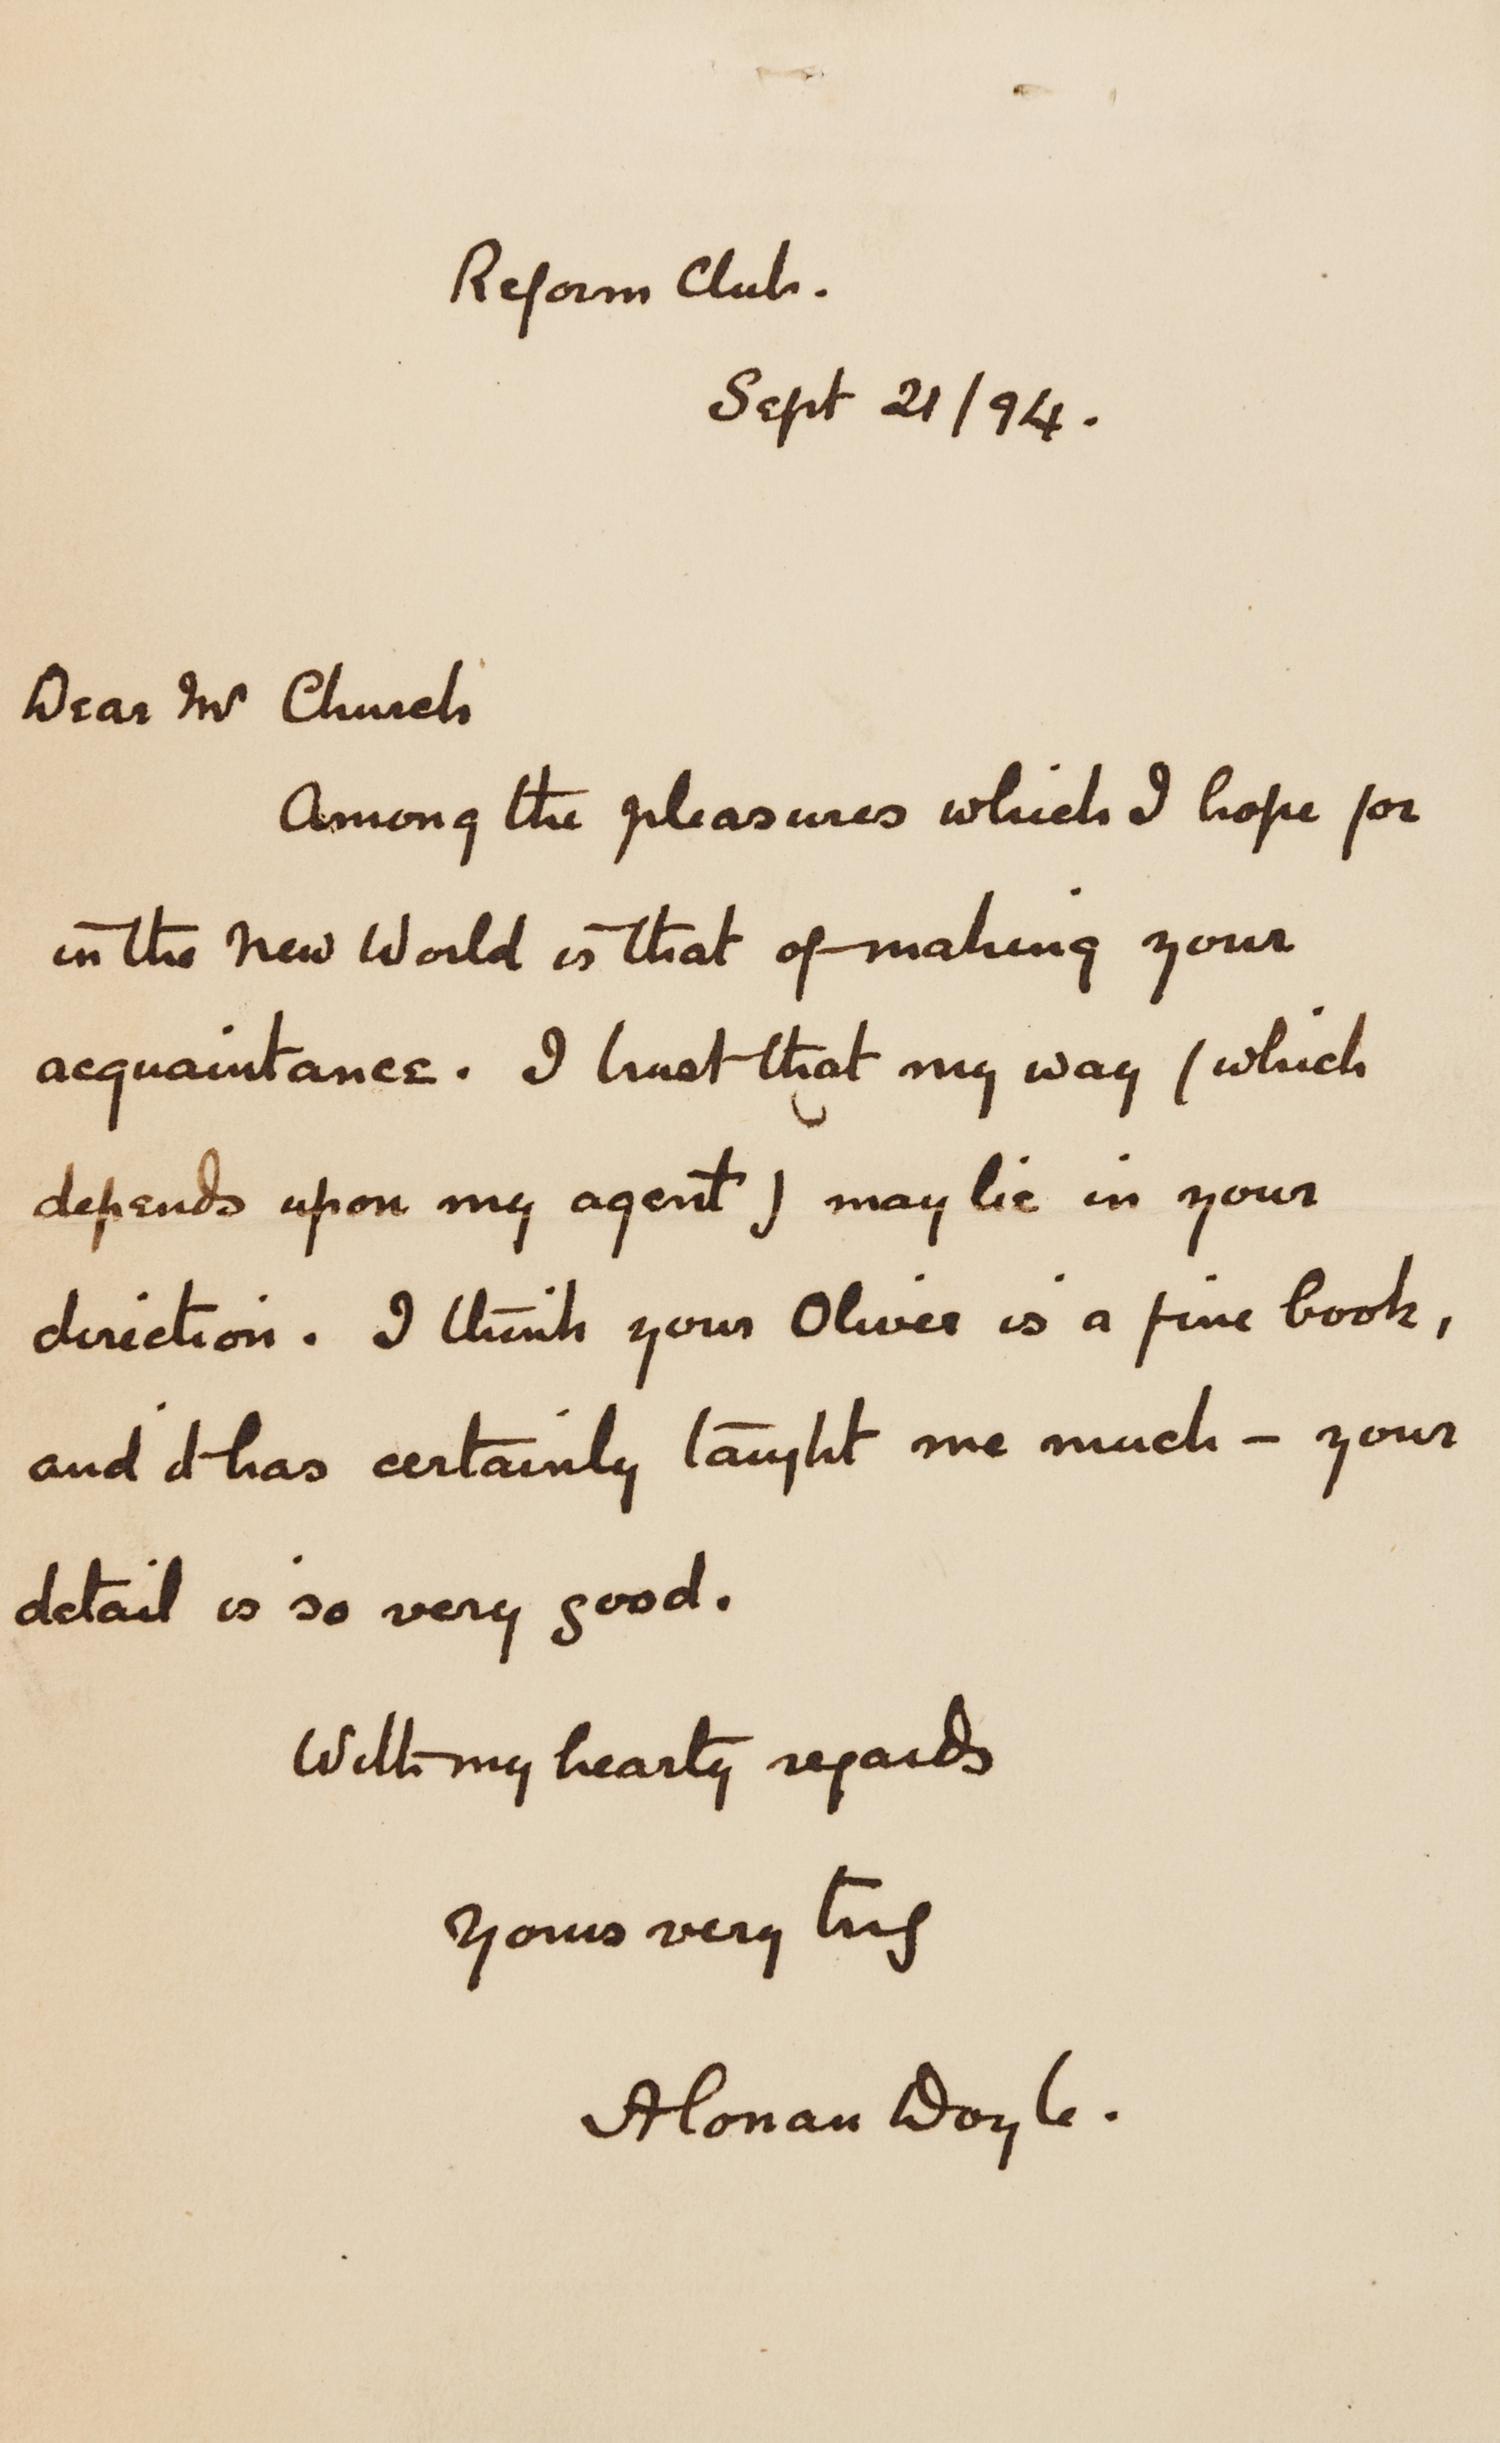 Reform Club.
Sept 21/94.
Dear Mr Church
Among the pleasures which I hope for
in the New World is that of making your
acquaintance. I trust that my way (which
depends upon my agent) may lie in your
direction. I think your Oliver is a fine book,
and it has certainly taught me much - your
detail is so very good.
With my hearty regards
Yours very truly
A Conan Doyle.